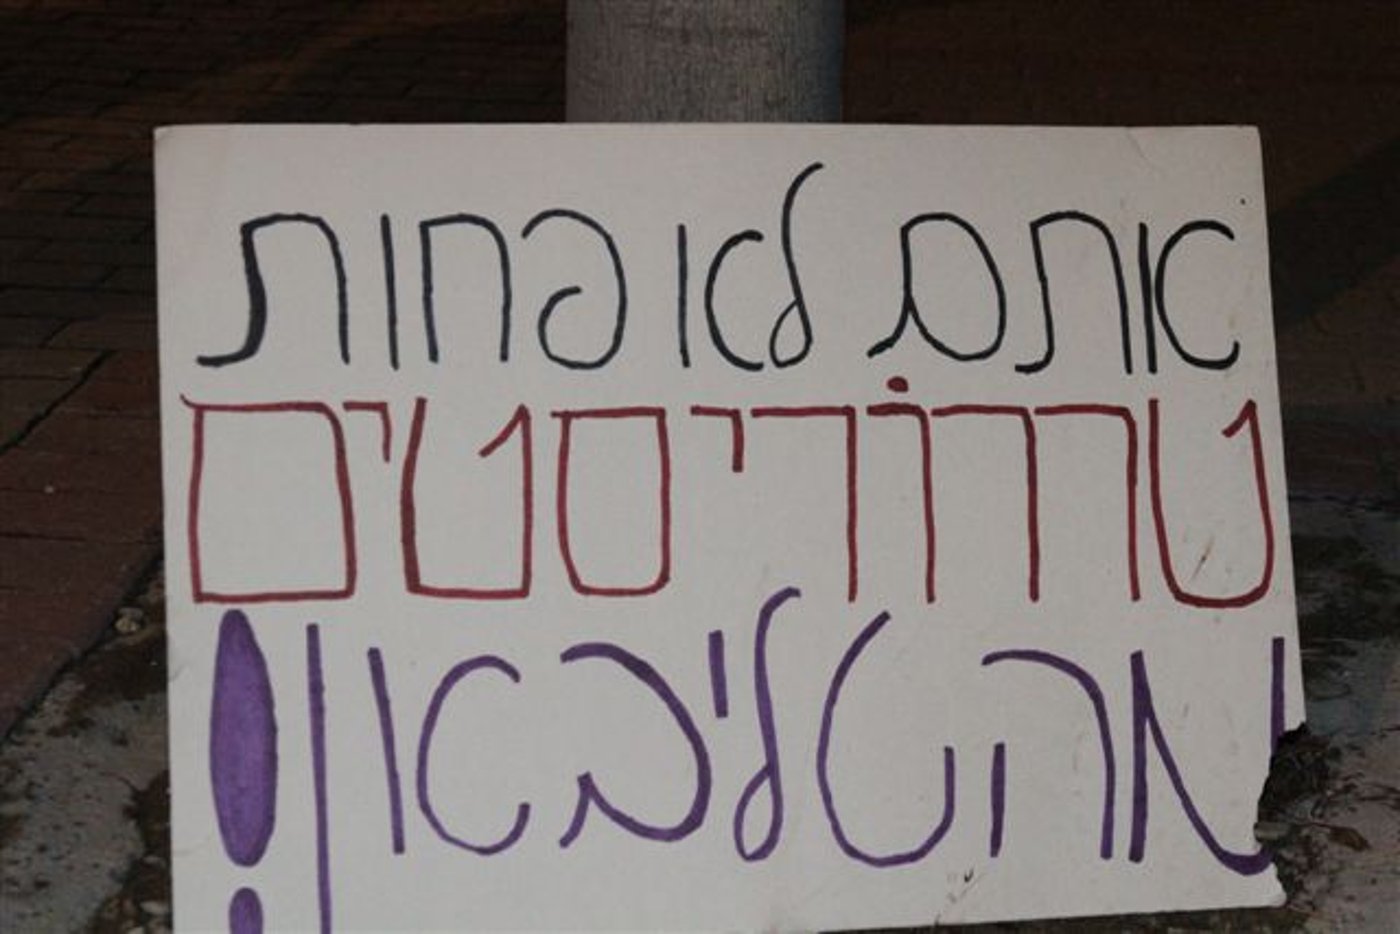 אתם לא פחות
טררוֹריסטים
מהטליבאן!